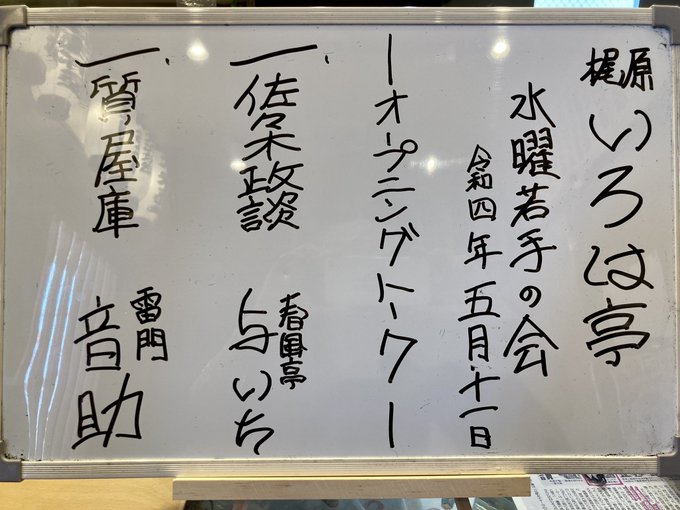 梶原 いろは亭
水曜若手の会
令和四年五月十一日
ーオープニングトークー
一、佐々木政談 春風亭 与いち
一、質屋庫 雷門 音助